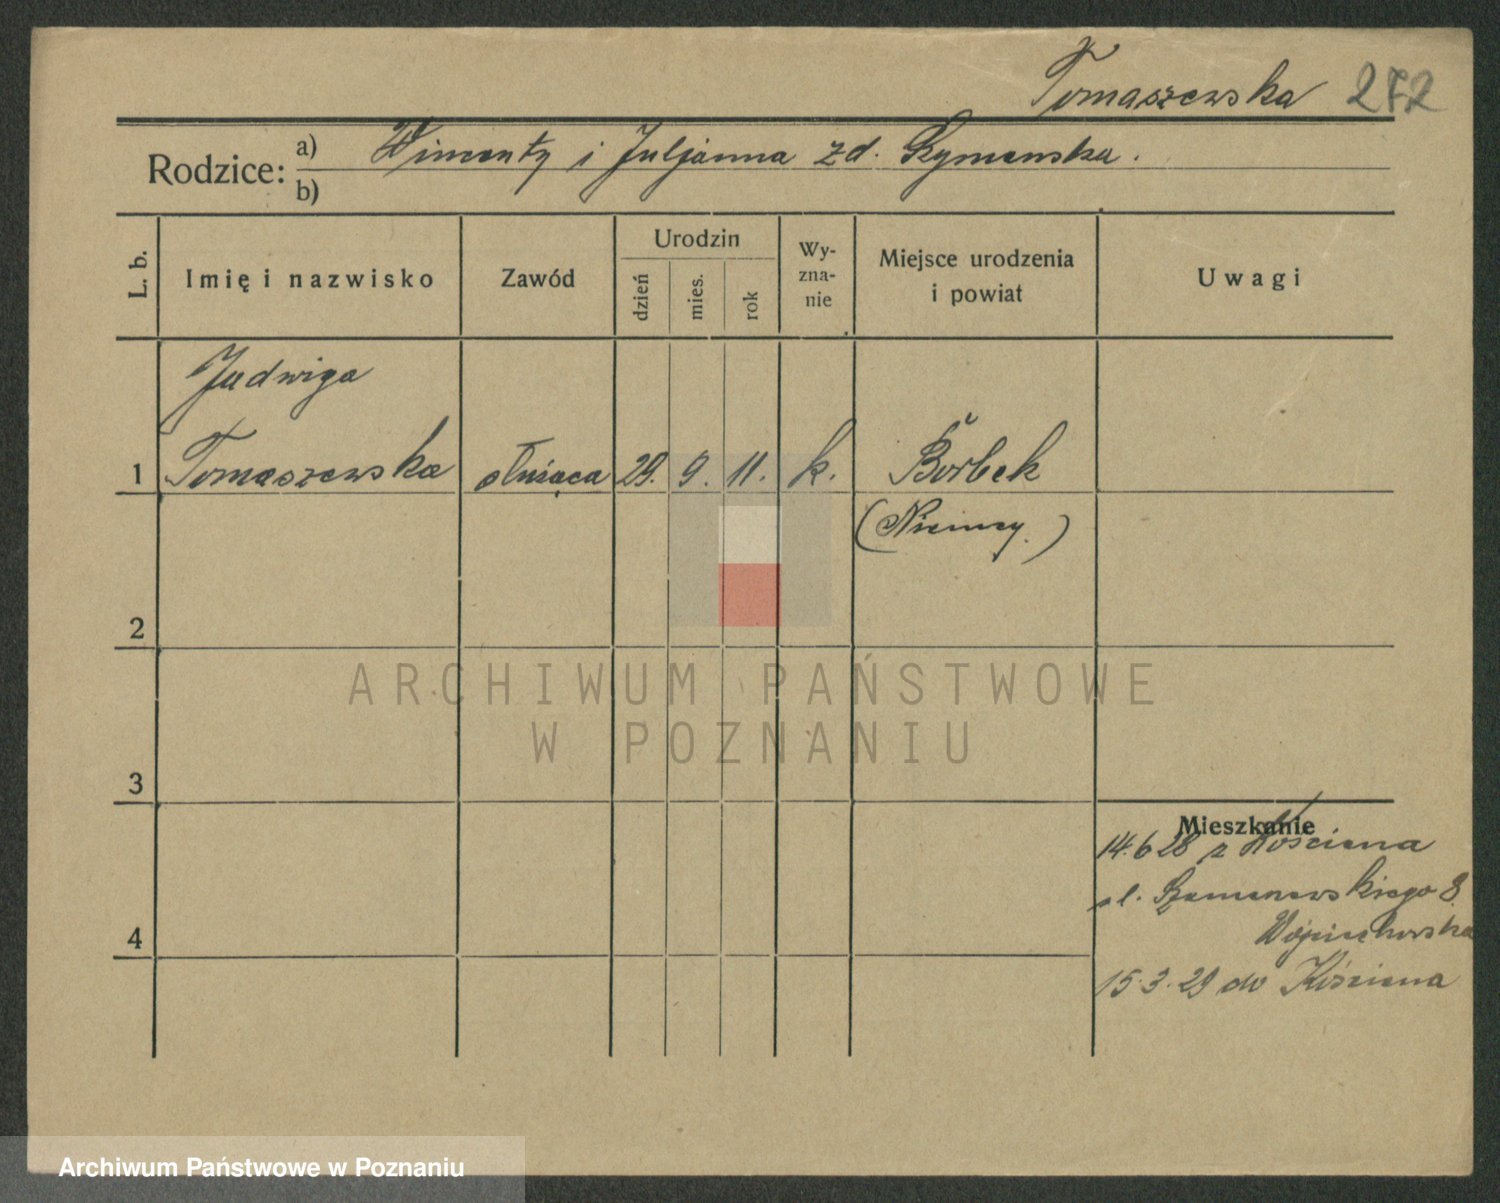 Tomaszewska 272
Rodzice: a) Wincenty i Juljanna zd. Szymańska.
b)
L. b.
Imię i nazwisko
Zawód
Urodzin
dzień
mies.
rok
Wy-
zna-
nie
Miejsce urodzenia
i powiat
Uwagi
Jadwiga
1 Tomaszewska służąca 29. 9. 11. k. Borbek
(Niemcy.)
2
ARCHIWUM PAŃSTWOWE
W POZNANIU
3
Mieszkanie
14.6 28 z Kościana
Wojciechowska
4
15.3.29 do Kościana
Archiwum Państwowe w Poznaniu